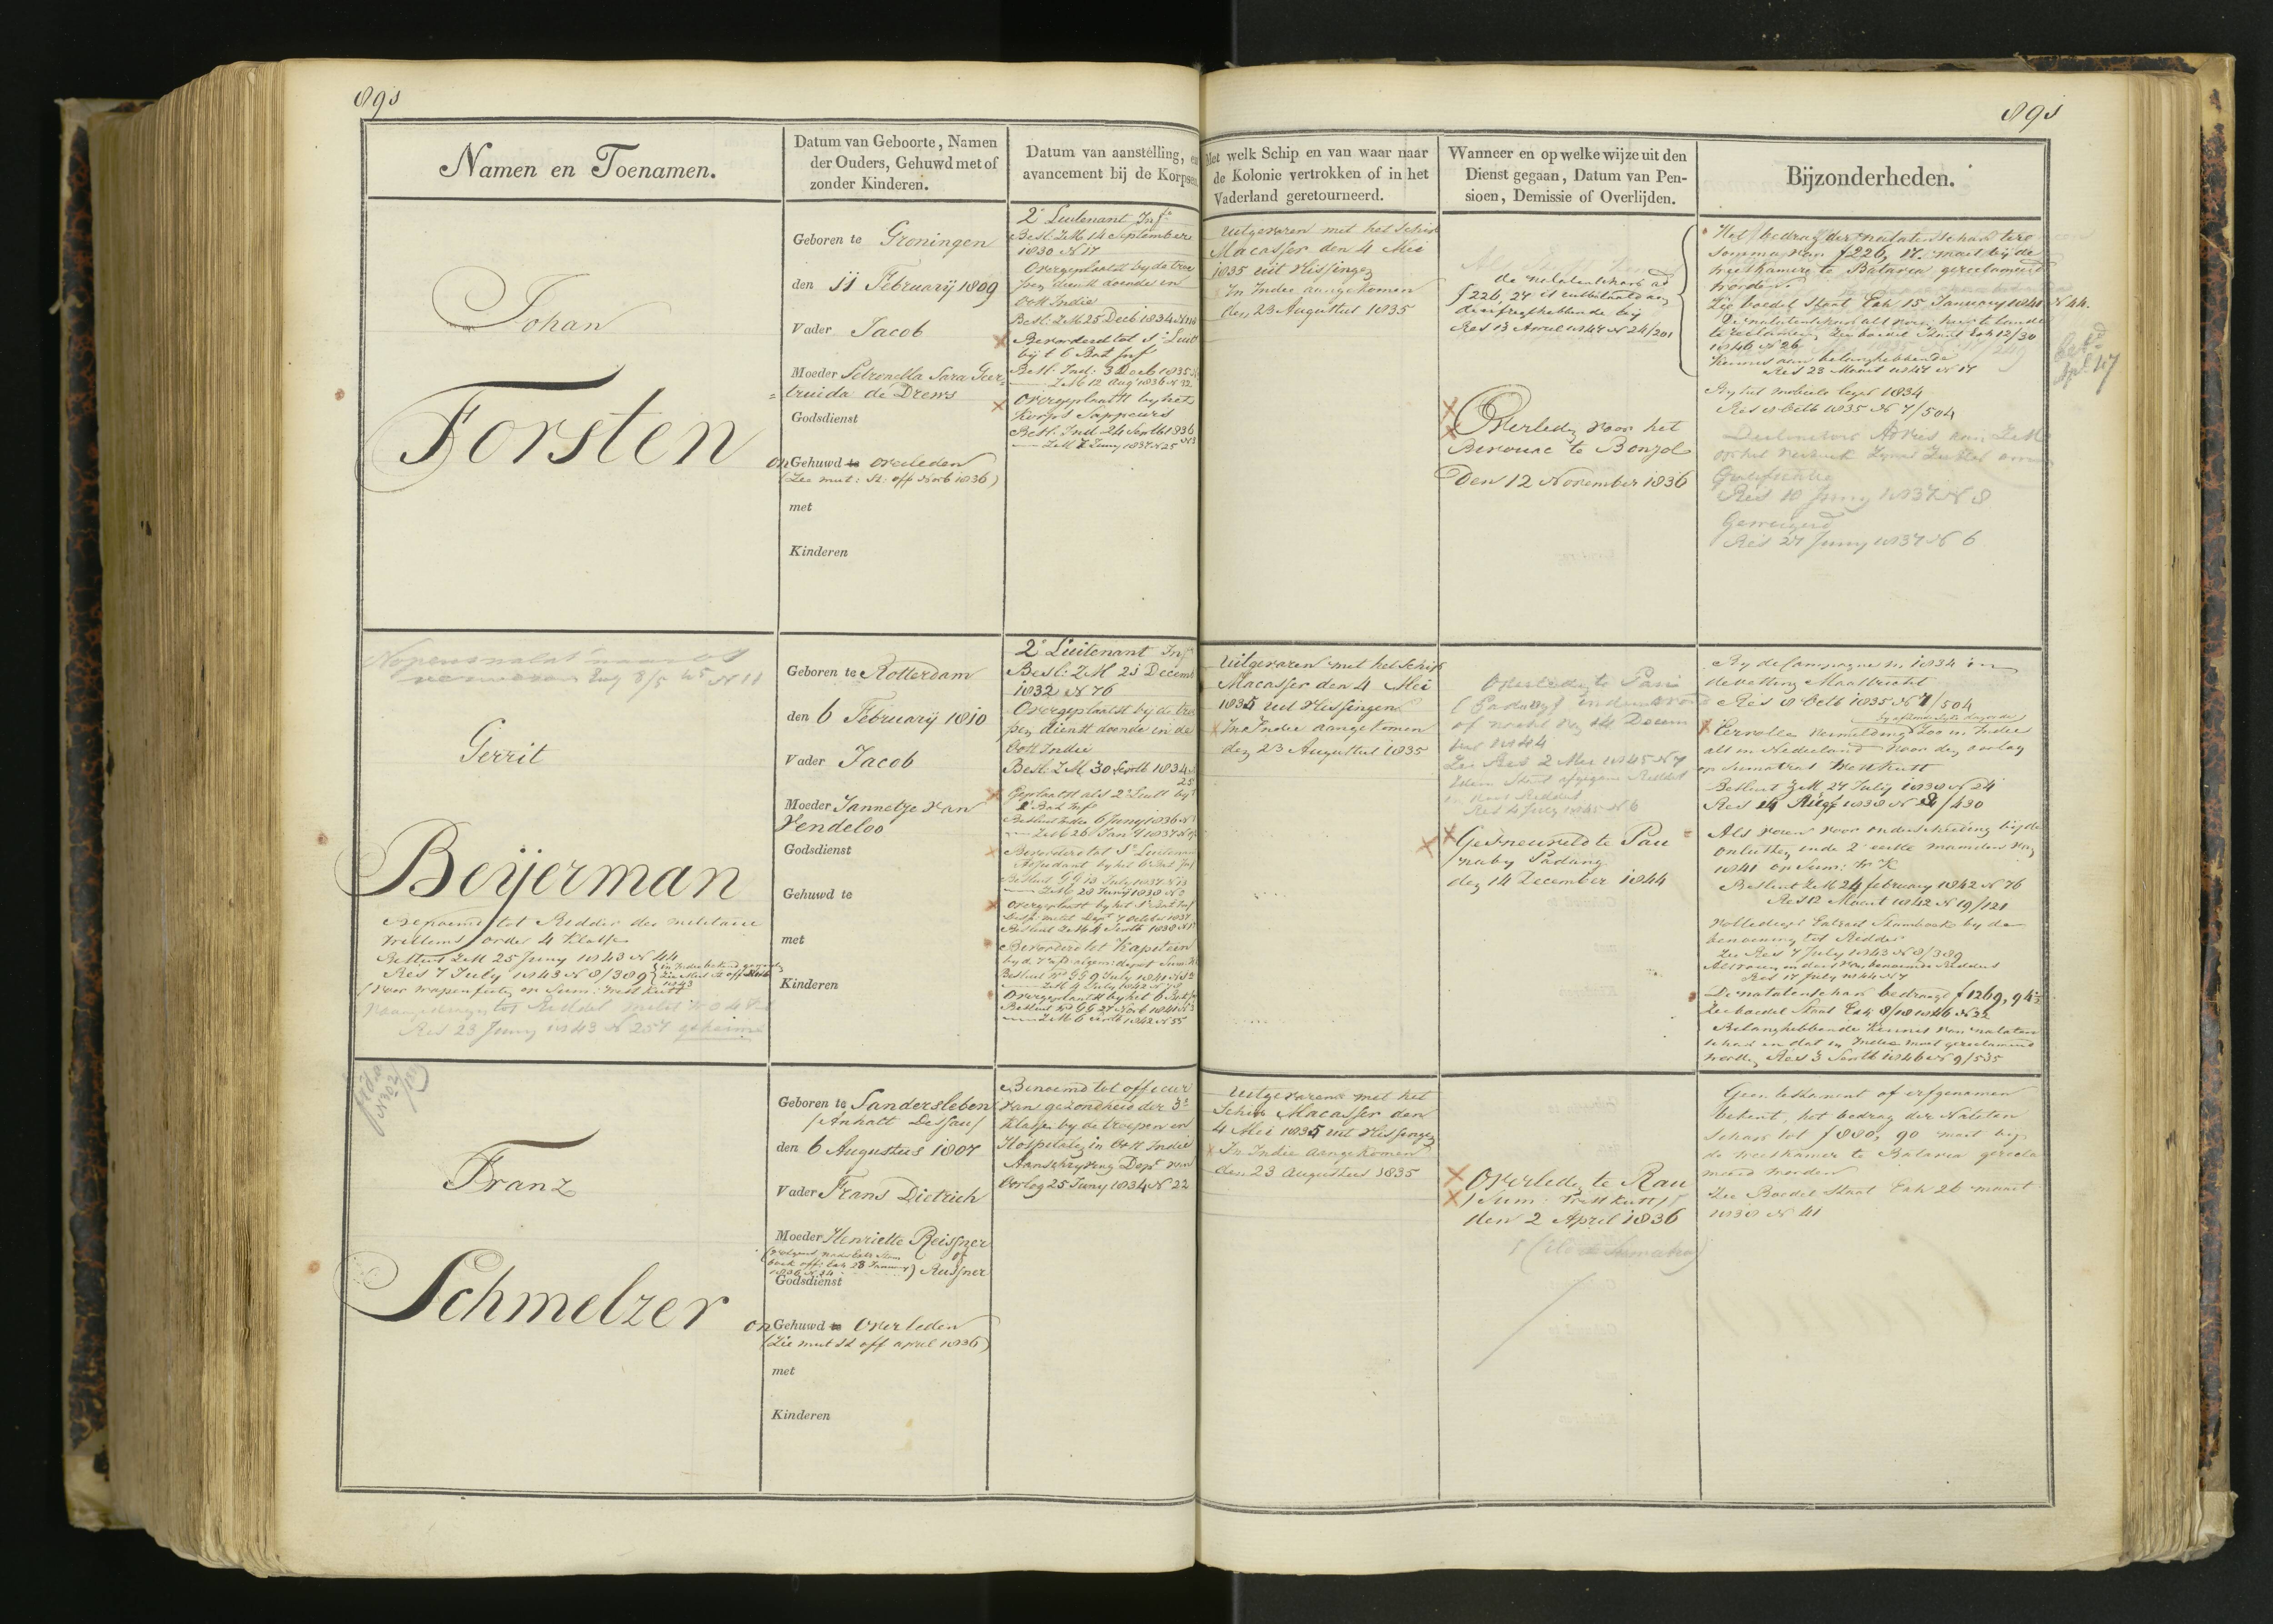 891
891
Namen en Toenamen.
Datum van Geboorte, Namen
der Ouders, Gehuwd met of
zonder Kinderen.
Datum van aanstelling, en
avancement bij de Korpsen
Met welk Schip en van waar naar
de Kolonie vertrokken of in het
Vaderland geretourneerd.
Wanneer en op welke wijze uit den
Dienst gegaan, Datum van Pen-
sioen, Demissie of Overlijden.
Bijzonderheden.
Johan
Forsten
Geboren te Groningen
den 11 February 1809
Vader Jacob
Moeder Petronella Sara Geer=
=truida de Drews
Godsdienst
onGehuwd te overleden
(Zie mut: St: off Novb 1836)
met
Kinderen
2e Luitenant Inf
Besl: ZM 14 September
1830 N 17
Overgeplaatst by de troe
pen dienst doende in
Oost Indie
Besl: ZM 25 Decb 1834
Bevorderd tot 1e Luit
bij t 6 Bat Inf
Besl: Ind: 3 Decb 1835
ZM 12 Aug 1836 N 92
Overgeplaatst by het
Korps Sappeurs
Besl: Ind 24 Septb 1836
ZM 7 Juny 1837 N 25
Uitgevaren met het Schip
Macasser den 4 Mei
1835 uit Vlissingen
In Indie aangekomen
den 23 Augustus 1835
de nalatenschap ad
f 226,27 is uitbetaald aan
de erfregthebbende bij
Res 13 April 1847 N 24/201
Overleden voor het
Bivouac te Bonjol
Den 12 November 1836
Het bedrag der nalatenschap tere
somma van f 226, 27 moet bij de
weeskamer te Batavia gereclameerd
worden
Zie boedel Staat Exh 15 January 1841 N 44.
1846 N 26
Kennis aan belanghebbende
Res 23 Maart 1847 N 17
By het mobiele leger 1834
Res 8 Octb 1835 N 7/504
Res 10 Juny 1837 N 8
Geweigerd
Res 27 Juny 1837 N 6
Gerrit
Beijerman
Benoemd tot Ridder der militaire
Willems order 4 Klasse
Besluit ZM 25 Juny 1843 N 44
Res 7 July 1843 N 8/389
(voor wapenfeiten op Sum: West Kust
Res 23 Juny 1843 N 257 geheim
Geboren te Rotterdam
den 6 February 1810
Vader Jacob
Moeder Jannetje van
Vendeloo
Godsdienst
Gehuwd te
met
Kinderen
2e Luitenant Inf
Besl: ZM 21 Decemb
1832 N 76
Overgeplaatst bij de troe
pen dienst doende in de
Oost Indie
Besl: ZM 30 Septb 1834
25
Geplaatst als 2e Luit by
Bat Inf
Besluit Indie 6 Juny 1836 N
ZM 26 Jan 1837
Bevorderd tot 1e Luitenant
Adjudant by het 6 Bat Inf
Besluit GG 13 July 1837 N 13
ZM 28 Juny 1838 N
Overgeplaatst by het 1e Bat Inf
Besluit ZM 4 Septb 1838
Bevorderd tot Kapitein
Besluit GG 9 July 1841 N
ZM 4 July 1842 N 78
Overgeplaatst by het 6 Bat
Besluit GG 27 Novb 1841 N 3
ZM 6 Septb 1842 N 55
Uitgevaren met het Schip
Macasser den 4 Mei
1835 uit Vlissingen
In Indie aangekomen
den 23 Augustus 1835
Overleden te Pau
of nacht van 14 Decem
ber 1844
Zie Res 2 Mei 1845 N 7
Res 4 July 1845 N 6
Gesneuveld te Pau
nabij Padang
den 14 December 1844
By de Campagne in 1834 in
de vesting Maastricht
Res 8 Octb 1835 N 7/504
Eervolle Vermelding zoo in Indie
als in Nederland voor den oorlog
op Sumatras Westkust
Besluit ZM 27 July 1838 N 24
Res 14 Aug 1838 N 8/430
Als voren voor onderscheiding bij de
onlusten in de 2 eerste maanden van
1841 op Sum: W: K
Besluit ZM 24 february 1842 N 76
Res 12 Maart 1842 N 19/121
Volledige Extract Stamboek by de
benoeming tot Ridder
Zie Res 7 July 1843 N 8/389
Res 17 July 1844 N 7
De nalatenschap bedraagt f 1269, 94½
Zie boedel Staat Exh 8/18 1846 N 22
Belanghebbende Kennis van nalaten
schap en dat in Indie moet gereclameerd
worden Res 3 Septb 1846 N 9/535
Franz
Schmelzer
Geboren te Sandersleben
/Anhalt Dessau/
den 6 Augustus 1807
Vader Frans Dietrich
Moeder Henriette Reissner
of
Reusner
Godsdienst
onGehuwd te overleden
(Zie mut St off april 1836)
met
Kinderen
Benoemd tot officier
van gezondheid der 3e
Klasse by de troepen en
Hospitalen in Oost Indie
Aanschryving Dept van
Oorlog 25 Juny 1834 N 22
Uitgevaren met het
Schip Macasser den
4 Mei 1835 uit Vlissingen
In Indie aangekomen
den 23 Augustus 1835
Overleden te Rau
/Sum: West Kust/
den 2 April 1836
Geen testament of erfgenamen
bekent, het bedrag der Nalaten
schap tot f 880, 90 moet bij
de weeskamer te Batavia gerecla
meerd worden
Zie Boedel Staat Exh 26 maart
1838 N 41